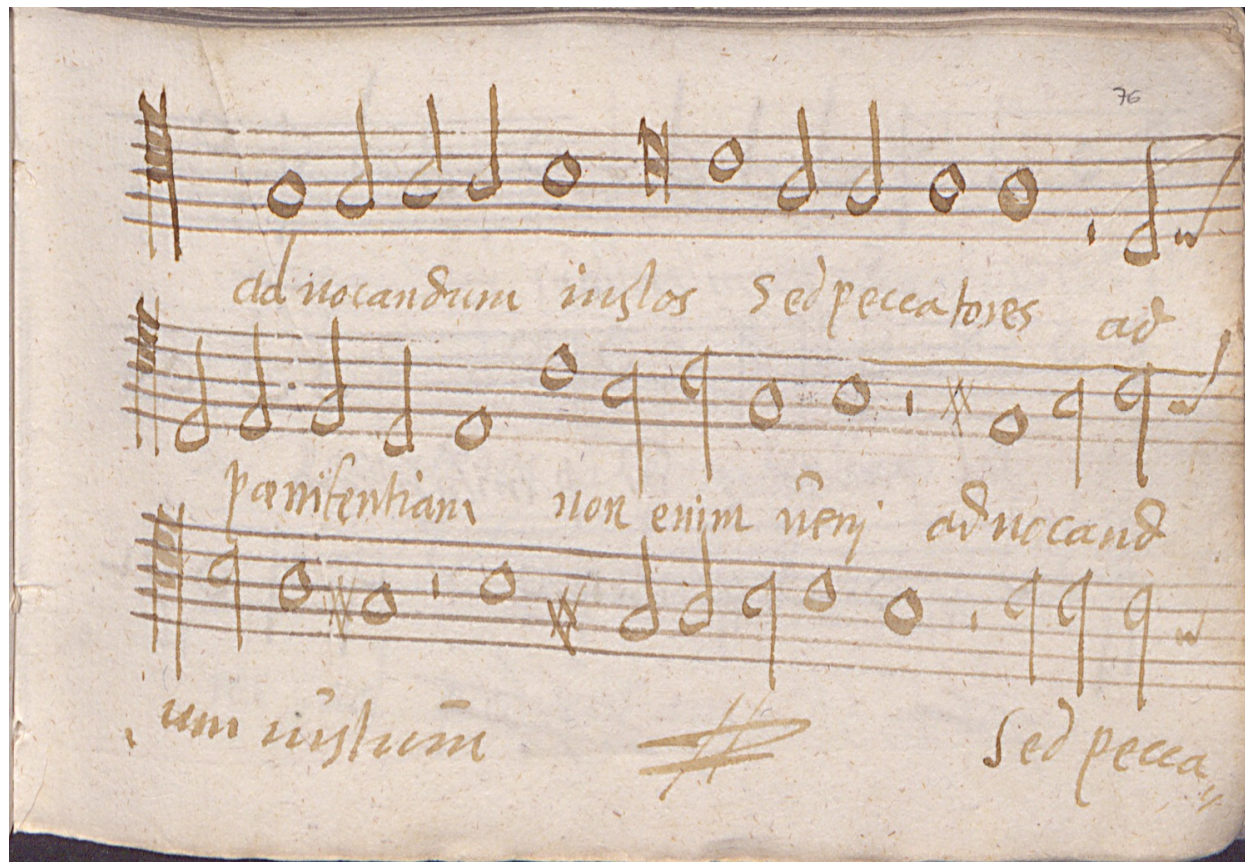 76
ad vocandum iustos Sed peccatores ad
pœnitentiam non enim ūenj ad vocand
um iūstum̄ Sed pecca